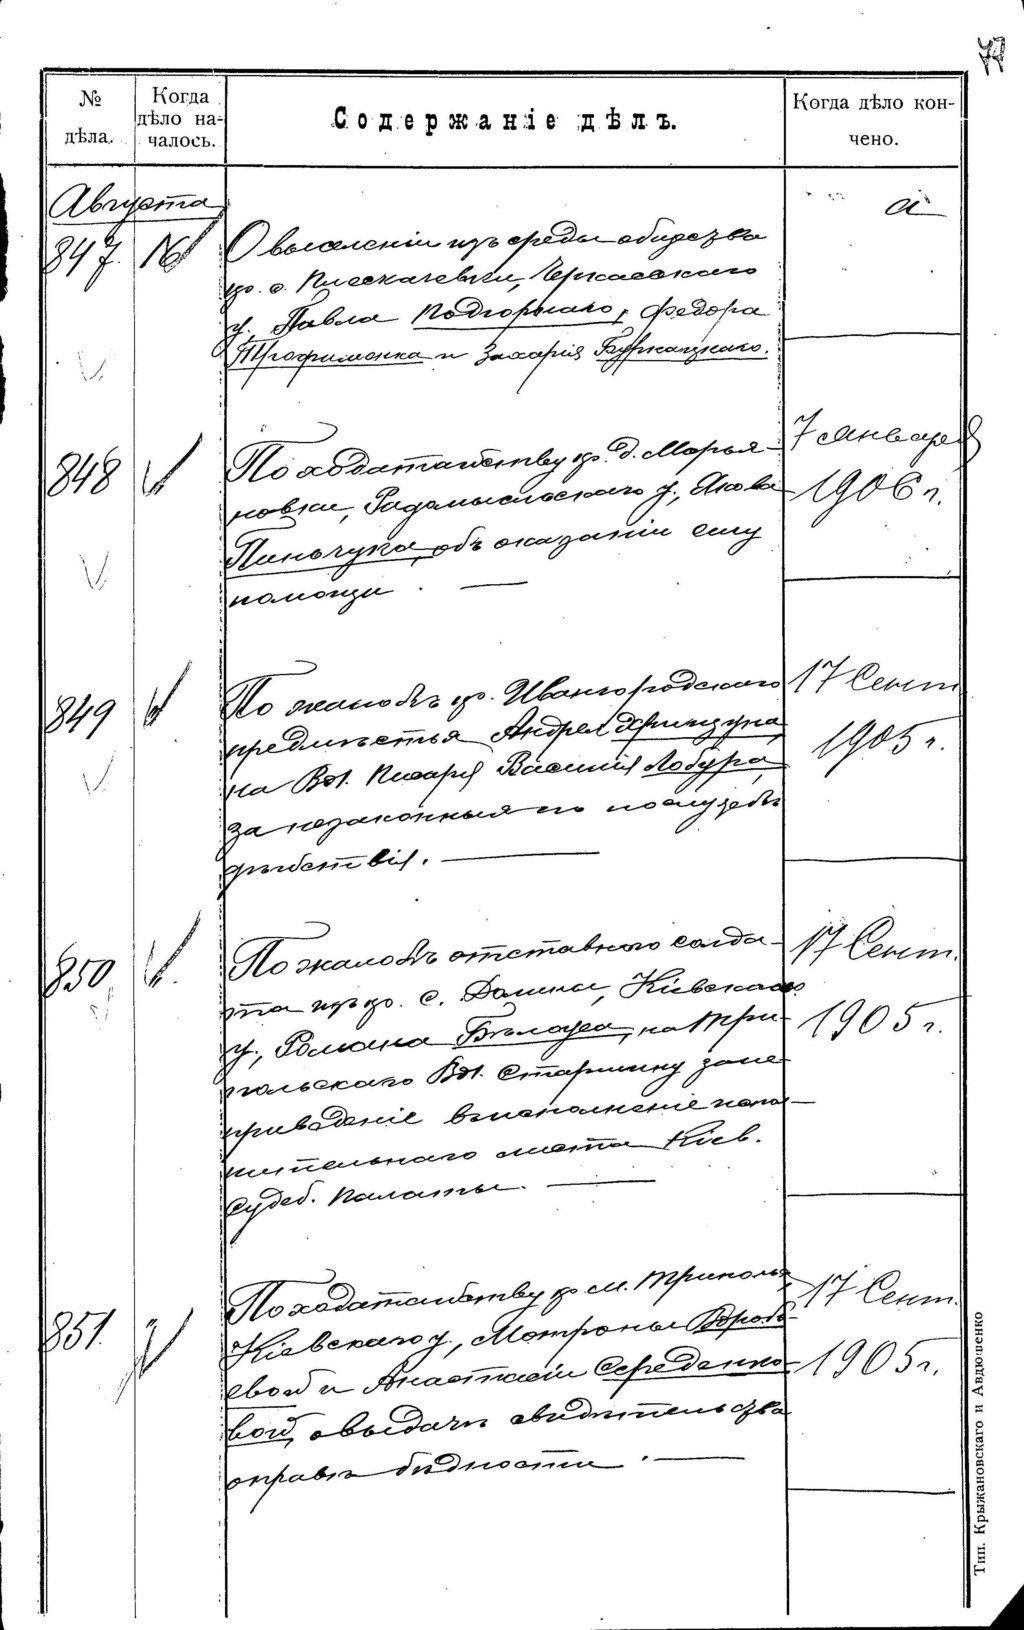 77
№ дѣла.
Когда дѣло на-
чалось.
Содержаніе дѣлъ.
Когда дѣло кон-
чено.
Августа
847
О выселеніи изъ среды общества
кр. с. Плескачевки, Черкасскаго
у., Павла Подгорнаго, Федора
Трофименка и Захарія
848
7 Января
1906 г.
По ходатайству кр. д. Марья-
новки, Радомысльскаго у., Якова
Пинчука, объ оказаніи ему
помощи.
849
17 Сент.
1905 г.
По жалобѣ кр. Ивангородскаго
предмѣстья Андрея
на Вол. Писаря Василія Лобура,
за незаконныя по по службѣ
дѣйствія.
850
17 Сент.
1905 г.
По жалобѣ отставного солда-
та изъ кр. с. Долины, Кіевскаго
у., Романа на Три-
польскаго Вол. Старшину за не
приведеніе въ исполненіе испол-
нительнаго листа Кіев.
Судеб. Палаты.
851.
17 Сент.
1905 г.
По ходатайству кр. м. Триполья
Кіевскаго у., Матроны Вороб-
евой и Анастасіи Середенко-
вой, о выдачѣ свидѣтельства
о правѣ бѣдности.
Тип. Крыжановскаго и Авдюшенко